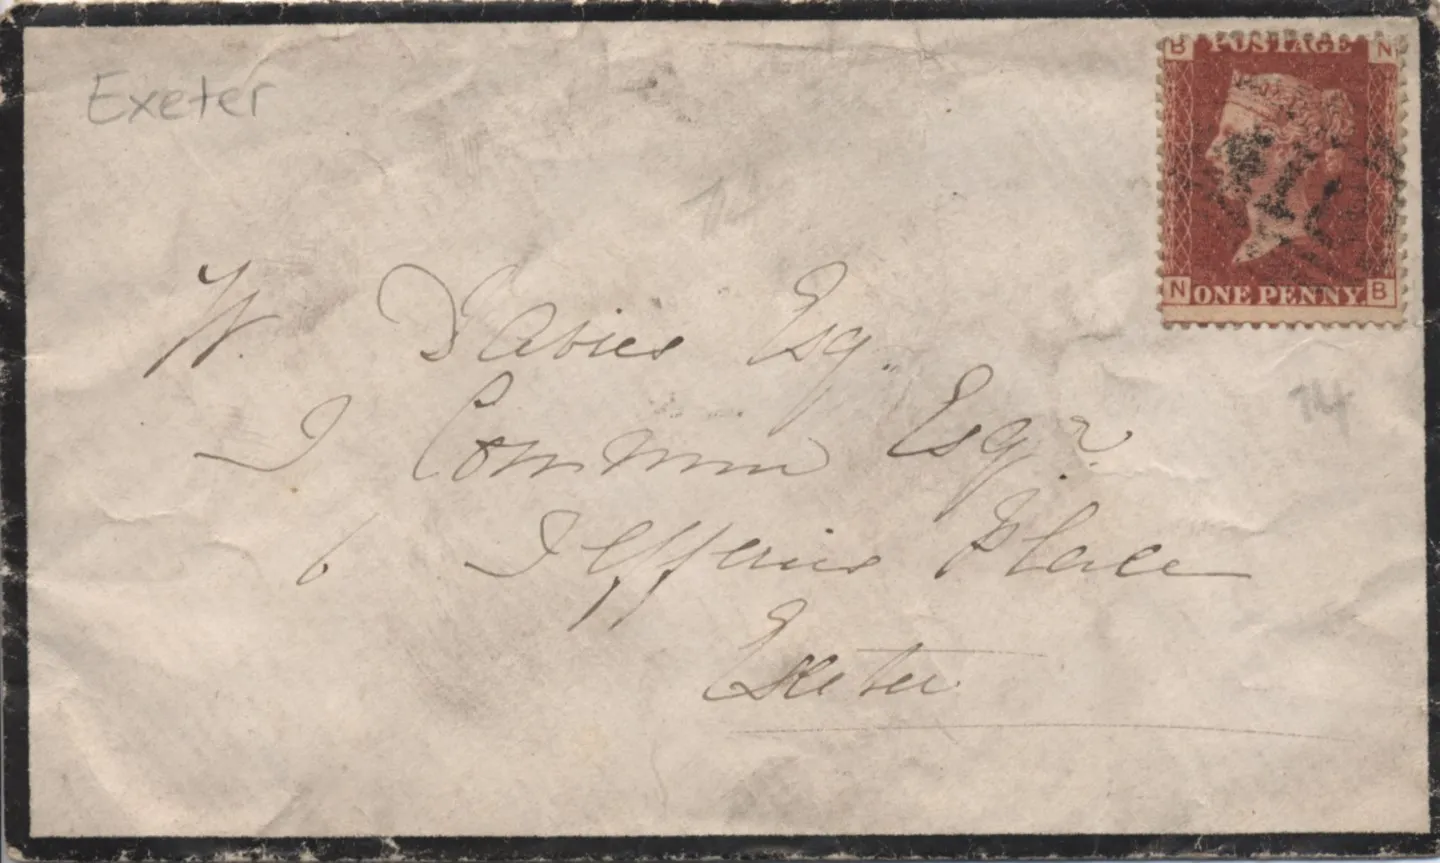 Exeter
B POSTAGE N
N ONE PENNY B
W. Davies Esq.
J Common Esqr.
6 Jefferies Place
Exeter